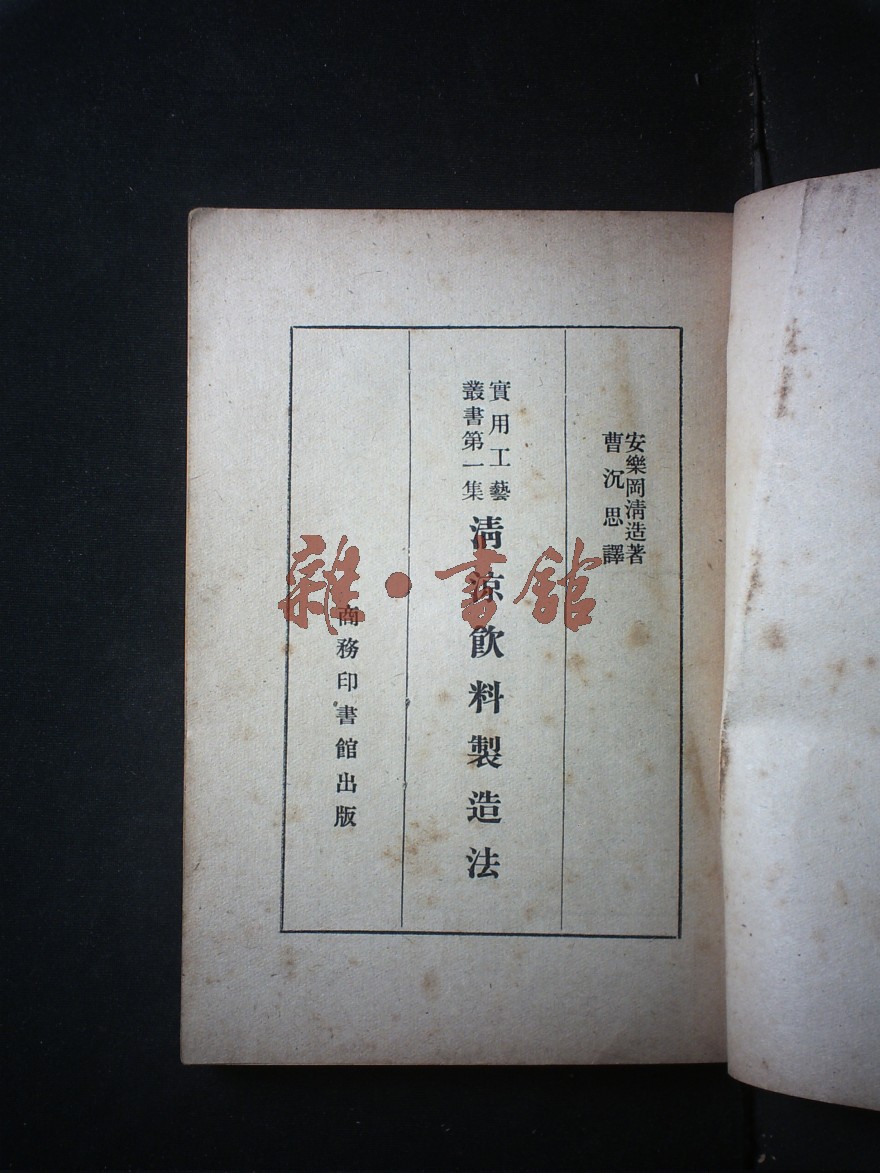 安樂岡淸造著
曹沉思譯
實用工藝
叢書第一集
淸涼飮料製造法
商務印書館出版
雜·書館